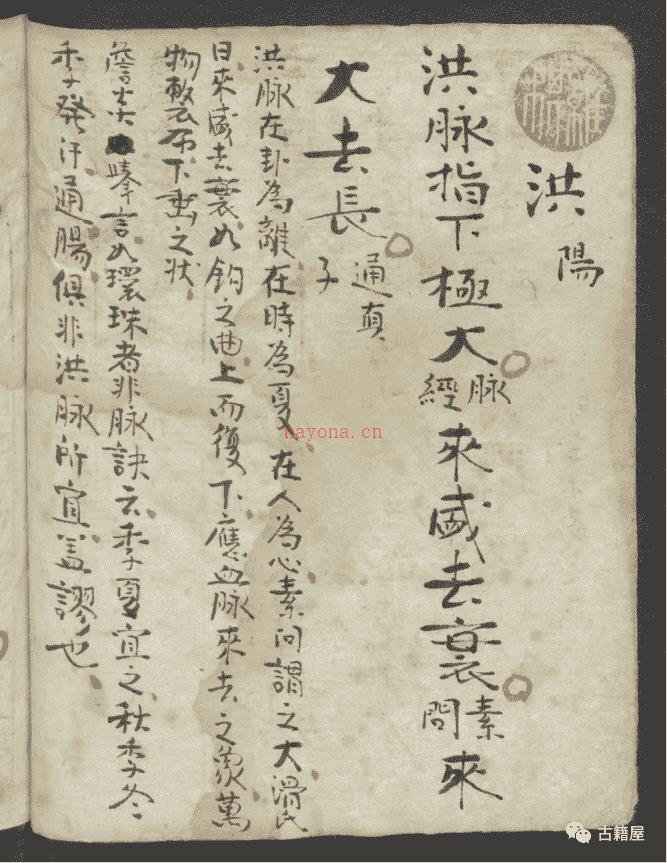 洪陽
洪脉指下極大脉經來盛去衰素問來
大去長通真子
洪脉在卦為離在時為夏在人為心素問謂之大滑氏
日來盛去衰如鈎之曲上而復下應血脉來去之象萬
物敷布下垂之状
詹炎舉言如環珠者非脉訣云季夏宜之秋季冬
季發汗通腸俱非洪脉所宜盖謬也
nayona.cn
古籍屋